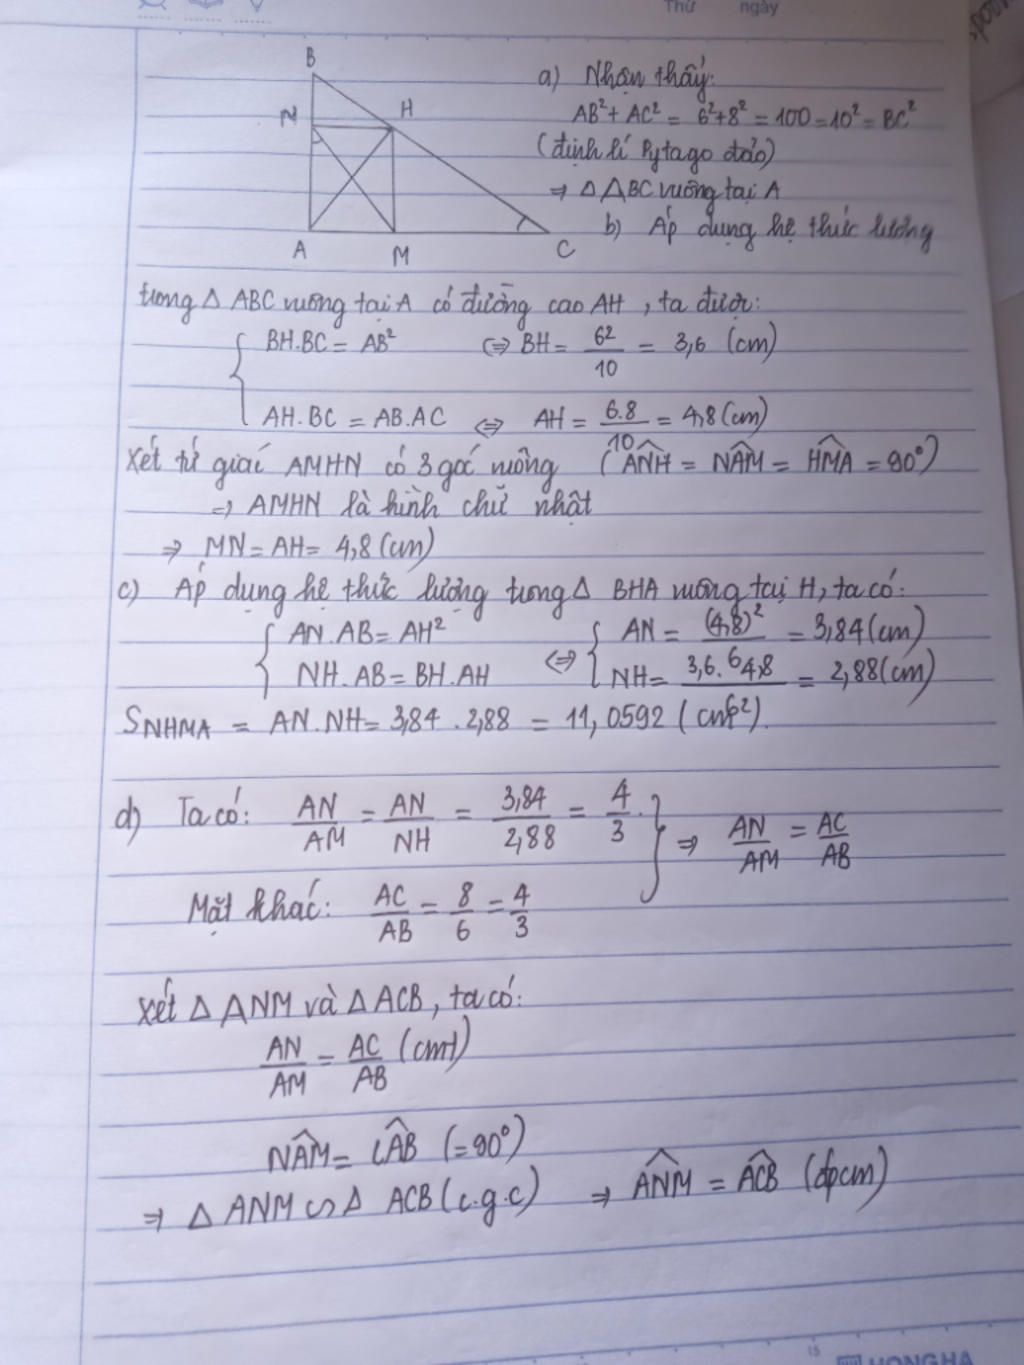 Thứ ngày
B
N
H
A
M
C
a) Nhận thấy:
AB² + AC² = 6²+8² = 100 = 10² = BC²
(định lí Pytago đảo)
⇒ △ ABC vuông tại A
b) Áp dụng hệ thức lượng
trong △ ABC vuông tại A có đường cao AH, ta được:
BH.BC = AB² ⇔ BH = 6²/10 = 3,6 (cm)
AH.BC = AB.AC ⇔ AH = 6.8/10 = 4,8 (cm)
Xét tứ giác AMHN có 3 góc vuông (ANH = NAM = HMA = 90°)
⇒ AMHN là hình chữ nhật
⇒ MN = AH = 4,8 (cm)
c) Áp dụng hệ thức lượng trong △ BHA vuông tại H, ta có:
AN.AB = AH² ⇔ AN = (4,8)²/6 = 3,84 (cm)
NH.AB = BH.AH NH = 3,6.4,8 = 2,88 (cm)
6
S NHMA = AN.NH = 3,84 . 2,88 = 11,0592 (cm²).
d) Ta có: AN/AM = AN/NH = 3,84/2,88 = 4/3. ⇒ AN/AM = AC/AB
Mặt khác: AC/AB = 8/6 = 4/3
Xét △ ANM và △ ACB, ta có:
AN/AM = AC/AB (cmt)
NAM = CAB (=90°)
⇒ △ ANM ∽ △ ACB (c.g.c) ⇒ ANM = ACB (đpcm)
15
HONG HA